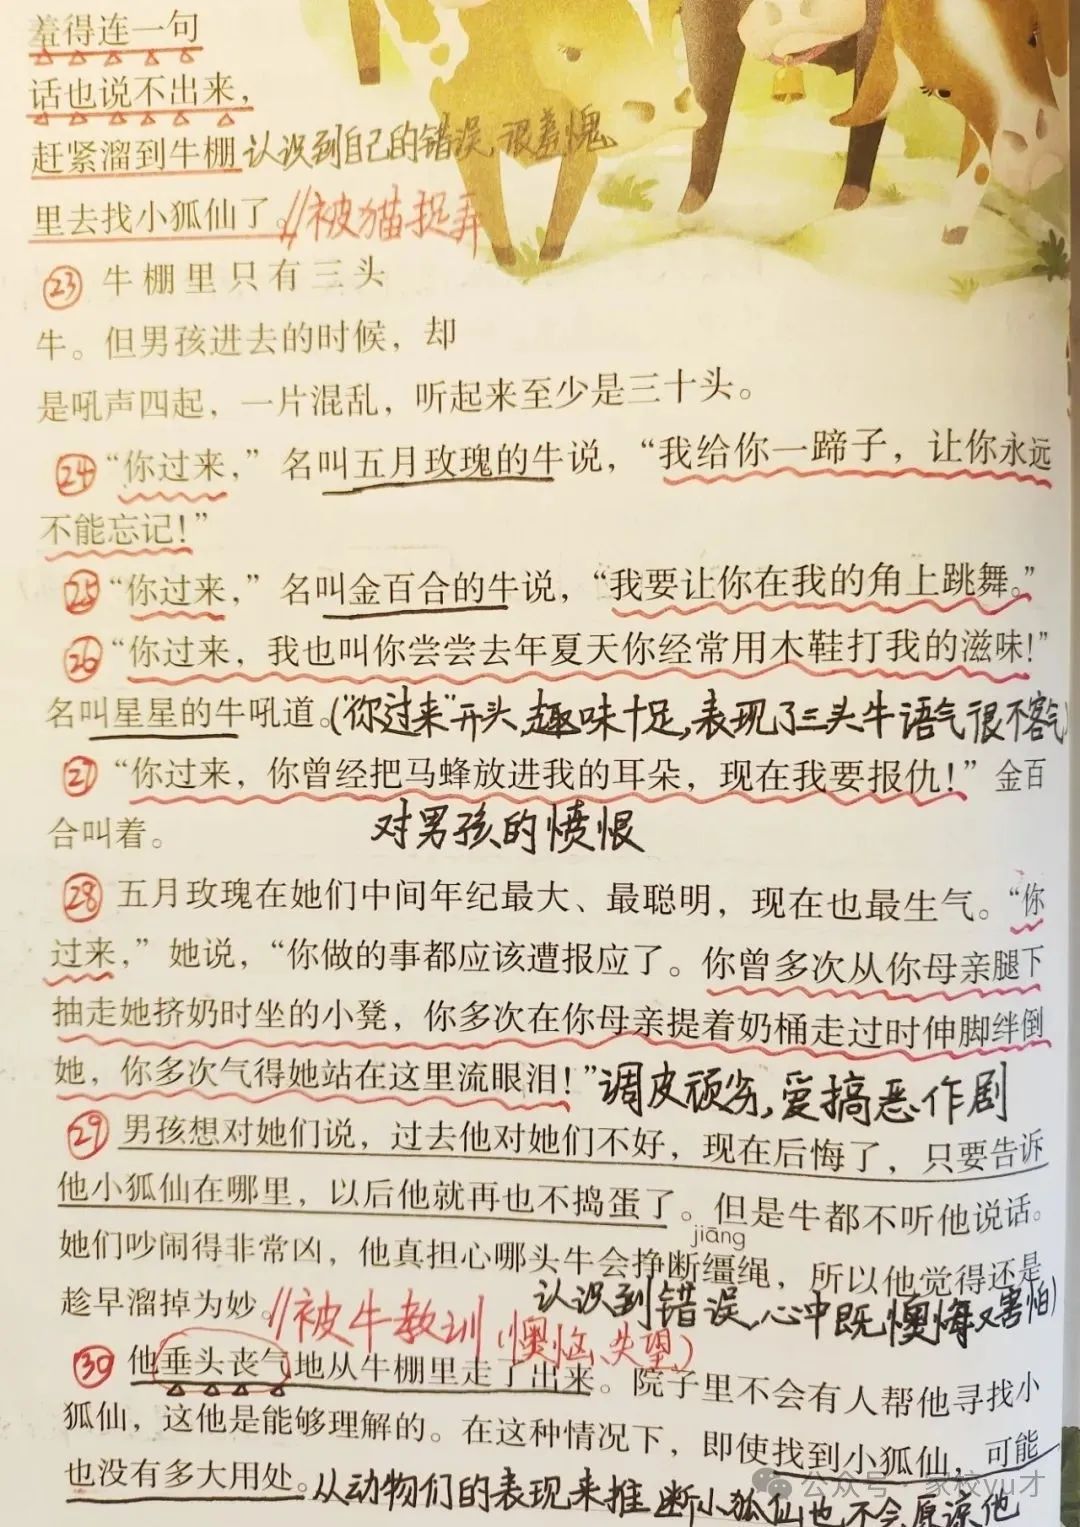 羞得连一句
话也说不出来，
赶紧溜到牛棚 认识到自己的错误，很羞愧
里去找小狐仙了。//被猫捉弄
㉓ 牛棚里只有三头
牛。但男孩进去的时候，却
是吼声四起，一片混乱，听起来至少是三十头。
㉔ “你过来，”名叫五月玫瑰的牛说，“我给你一蹄子，让你永远
不能忘记！”
㉕ “你过来，”名叫金百合的牛说，“我要让你在我的角上跳舞。”
㉖ “你过来，我也叫你尝尝去年夏天你经常用木鞋打我的滋味！”
名叫星星的牛吼道。(“你过来”开头，趣味十足，表现了三头牛语气很不客气)
㉗ “你过来，你曾经把马蜂放进我的耳朵，现在我要报仇！”金百
合叫着。 对男孩的愤恨
㉘ 五月玫瑰在她们中间年纪最大、最聪明，现在也最生气。“你
过来，”她说，“你做的事都应该遭报应了。你曾多次从你母亲腿下
抽走她挤奶时坐的小凳，你多次在你母亲提着奶桶走过时伸脚绊倒
她，你多次气得她站在这里流眼泪！”调皮顽劣，爱搞恶作剧
㉙ 男孩想对她们说，过去他对她们不好，现在后悔了，只要告诉
他小狐仙在哪里，以后他就再也不捣蛋了。但是牛都不听他说话。
jiāng
她们吵闹得非常凶，他真担心哪头牛会挣断缰绳，所以他觉得还是
趁早溜掉为妙。//被牛教训(懊恼、失望) 认识到错误，心中既懊悔又害怕)
㉚ 他垂头丧气地从牛棚里走了出来。院子里不会有人帮他寻找小
狐仙，这他是能够理解的。在这种情况下，即使找到小狐仙，可能
也没有多大用处。从动物们的表现来推断小狐仙也不会原谅他
公众号·家校yu才